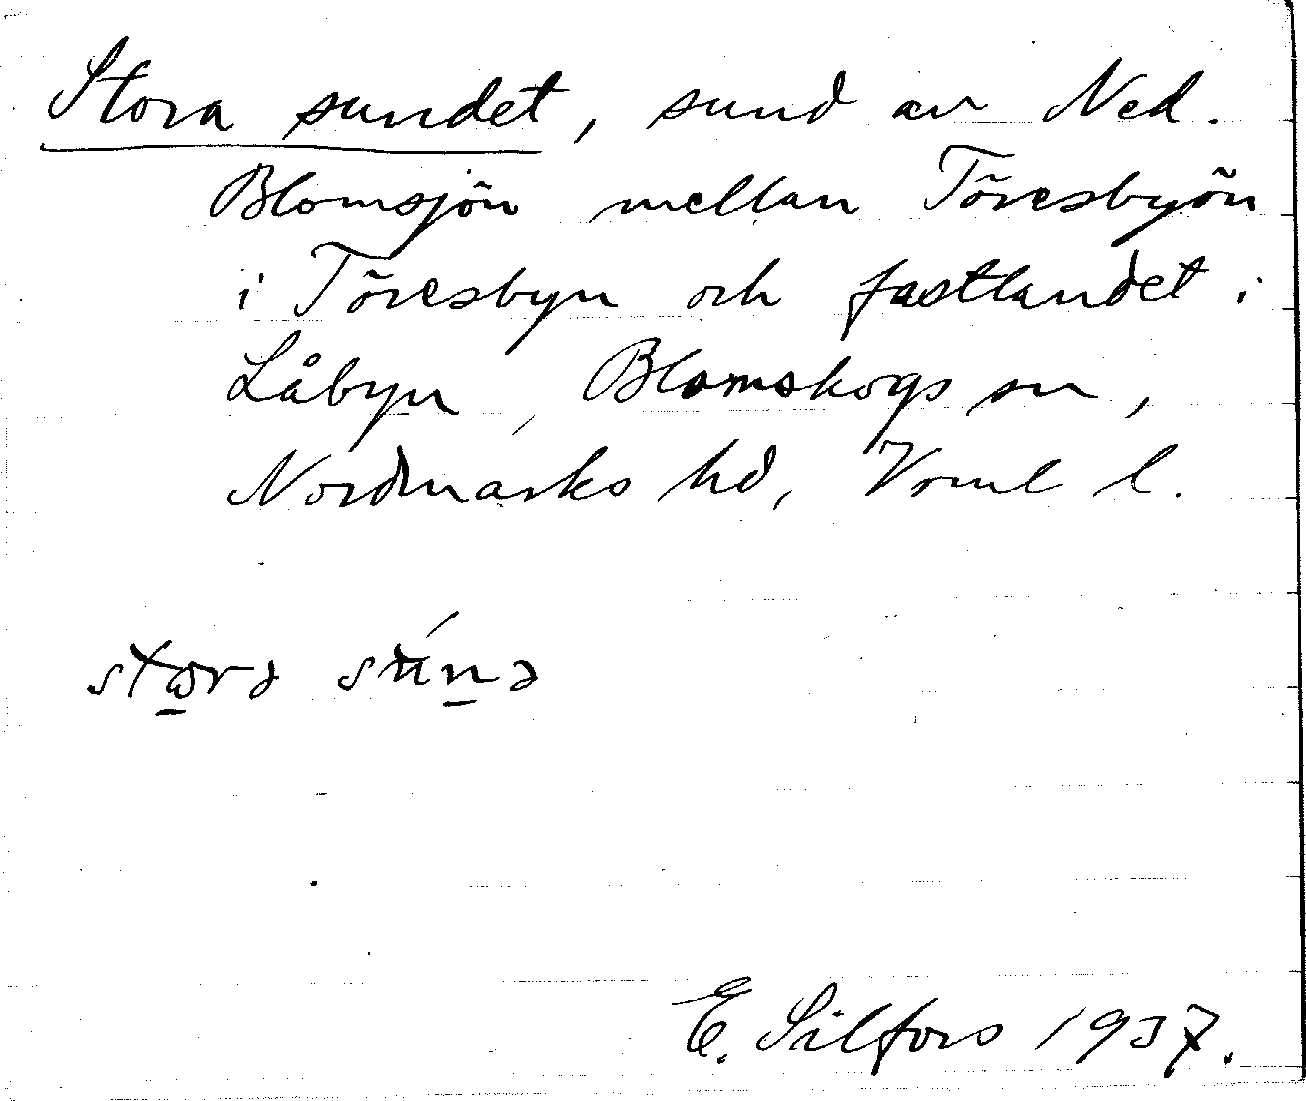 Stora sundet, sund av Ned.
Blomsjön mellan Töresbyön
i Töresbyn och fastlandet i
Låbyn, Blomskogs sn,
Nordmarks hd, Vrml l.
E. Silfors 1937.